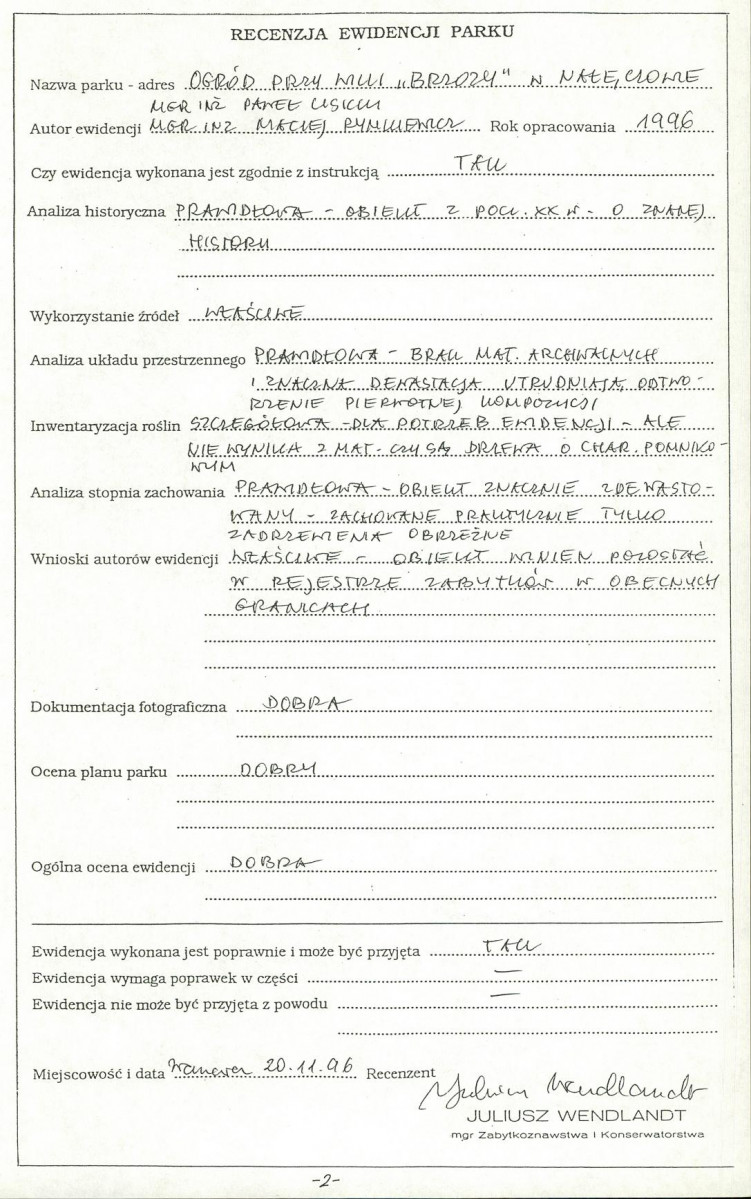 RECENZJA EWIDENCJI PARKU
Nazwa parku - adres OGRÓD PRZY WILLI „BRZOZY" W NAŁĘCZOWIE
MGR INŻ PAWEŁ LISICKI
Autor ewidencji MGR INŻ MACIEJ RYMKIEWICZ Rok opracowania 1996
Czy ewidencja wykonana jest zgodnie z instrukcją TAK
Analiza historyczna PRAWIDŁOWA - OBIEKT Z POCZ. XX W - O ZNANEJ
HISTORII
Wykorzystanie źródeł WŁAŚCIWE
Analiza układu przestrzennego PRAWIDŁOWA - BRAK MAT. ARCHIWALNYCH
I ZNACZNA DEWASTACJA UTRUDNIAJĄ ODTWO-
RZENIE PIERWOTNEJ KOMPOZYCJI
Inwentaryzacja roślin SZCZEGÓŁOWA - DLA POTRZEB EWIDENCJI - ALE
NIE WYNIKA Z MAT. CZY SĄ DRZEWA O CHAR. POMNIKO-
WYM
Analiza stopnia zachowania PRAWIDŁOWA - OBIEKT ZNACZNIE ZDEWASTO-
WANY - ZACHOWANE PRAKTYCZNIE TYLKO
ZADRZEWIENIA OBRZEŻNE
Wnioski autorów ewidencji WŁAŚCIWE - OBIEKT WINIEN POZOSTAĆ
W REJESTRZE ZABYTKÓW W OBECNYCH
GRANICACH
Dokumentacja fotograficzna DOBRA
Ocena planu parku DOBRY
Ogólna ocena ewidencji DOBRA
Ewidencja wykonana jest poprawnie i może być przyjęta TAK
Ewidencja wymaga poprawek w części —
Ewidencja nie może być przyjęta z powodu —
Miejscowość i data 20.11.96 Recenzent Juliusz Wendlandt
JULIUSZ WENDLANDT
mgr Zabytkoznawstwa i Konserwatorstwa
-2-